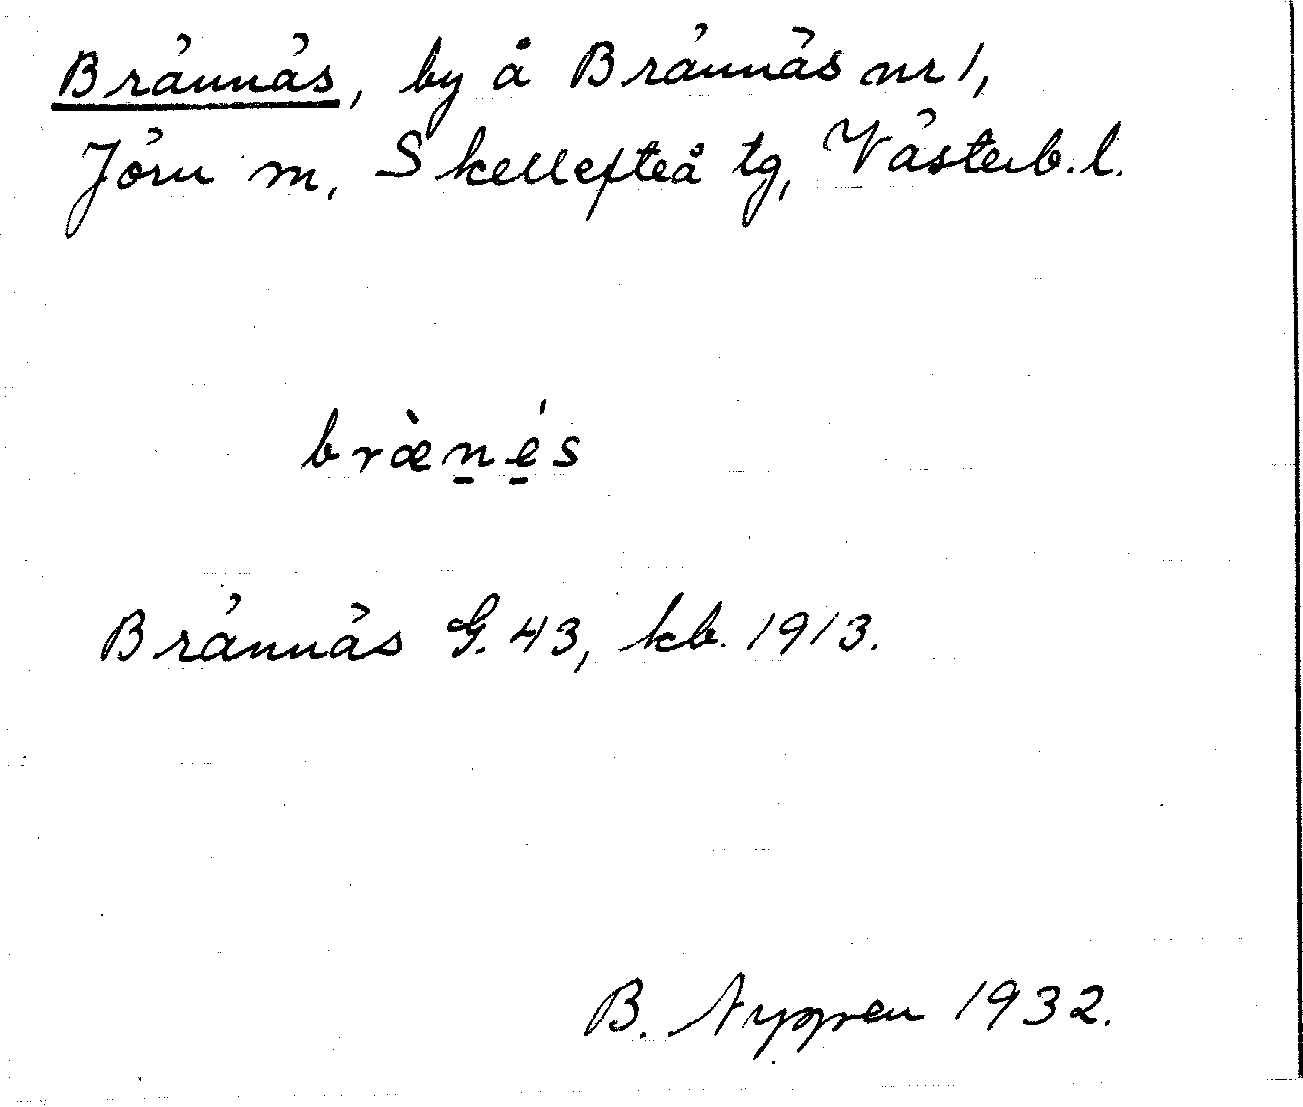 Brännäs, by å Brännäs nr 1,
Jörn sn, Skellefteå tg, Västerb. l.
bræ̀n̠é̠s
Brännäs G. 43, kb. 1913.
B. Nygren 1932.